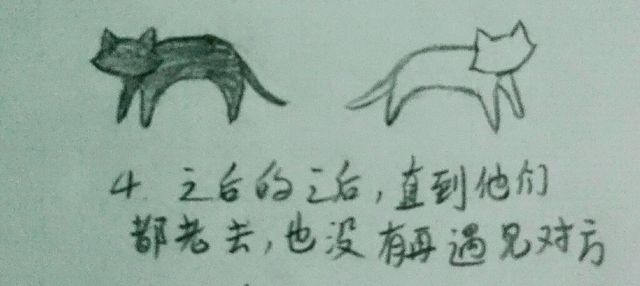 4. 之后的之后，直到他们
都老去，也没有再遇见对方